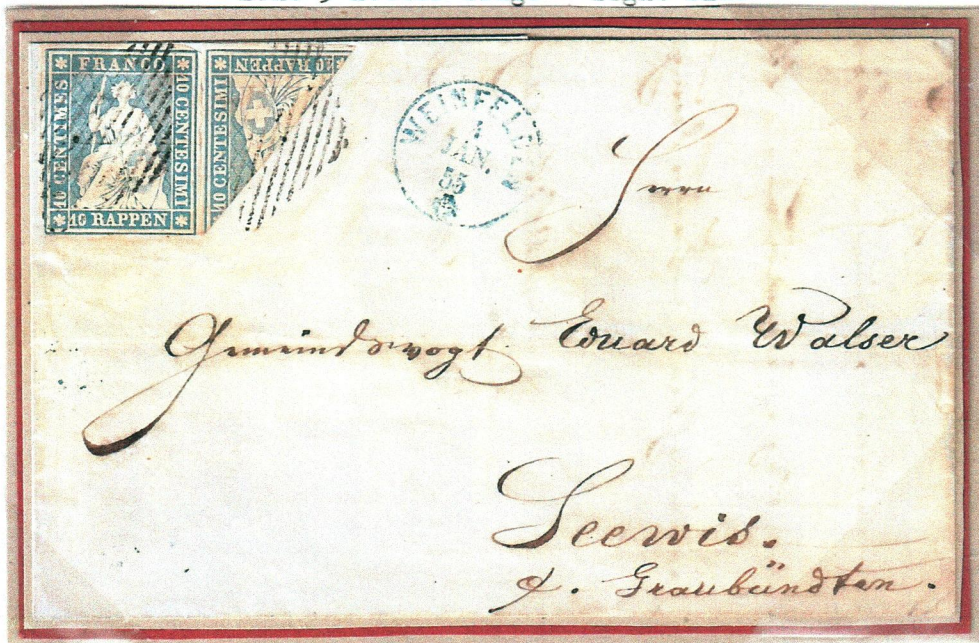 FRANCO
10 CENTYMES
10 CENTESIMI
*10 RAPPEN*
10 RAPPEN
10 CENTESIMI
WEINFELDEN
1
JAN.
55
Herrn
Gemeindsvogt Eduard Walser
Seewis.
Graubündten.